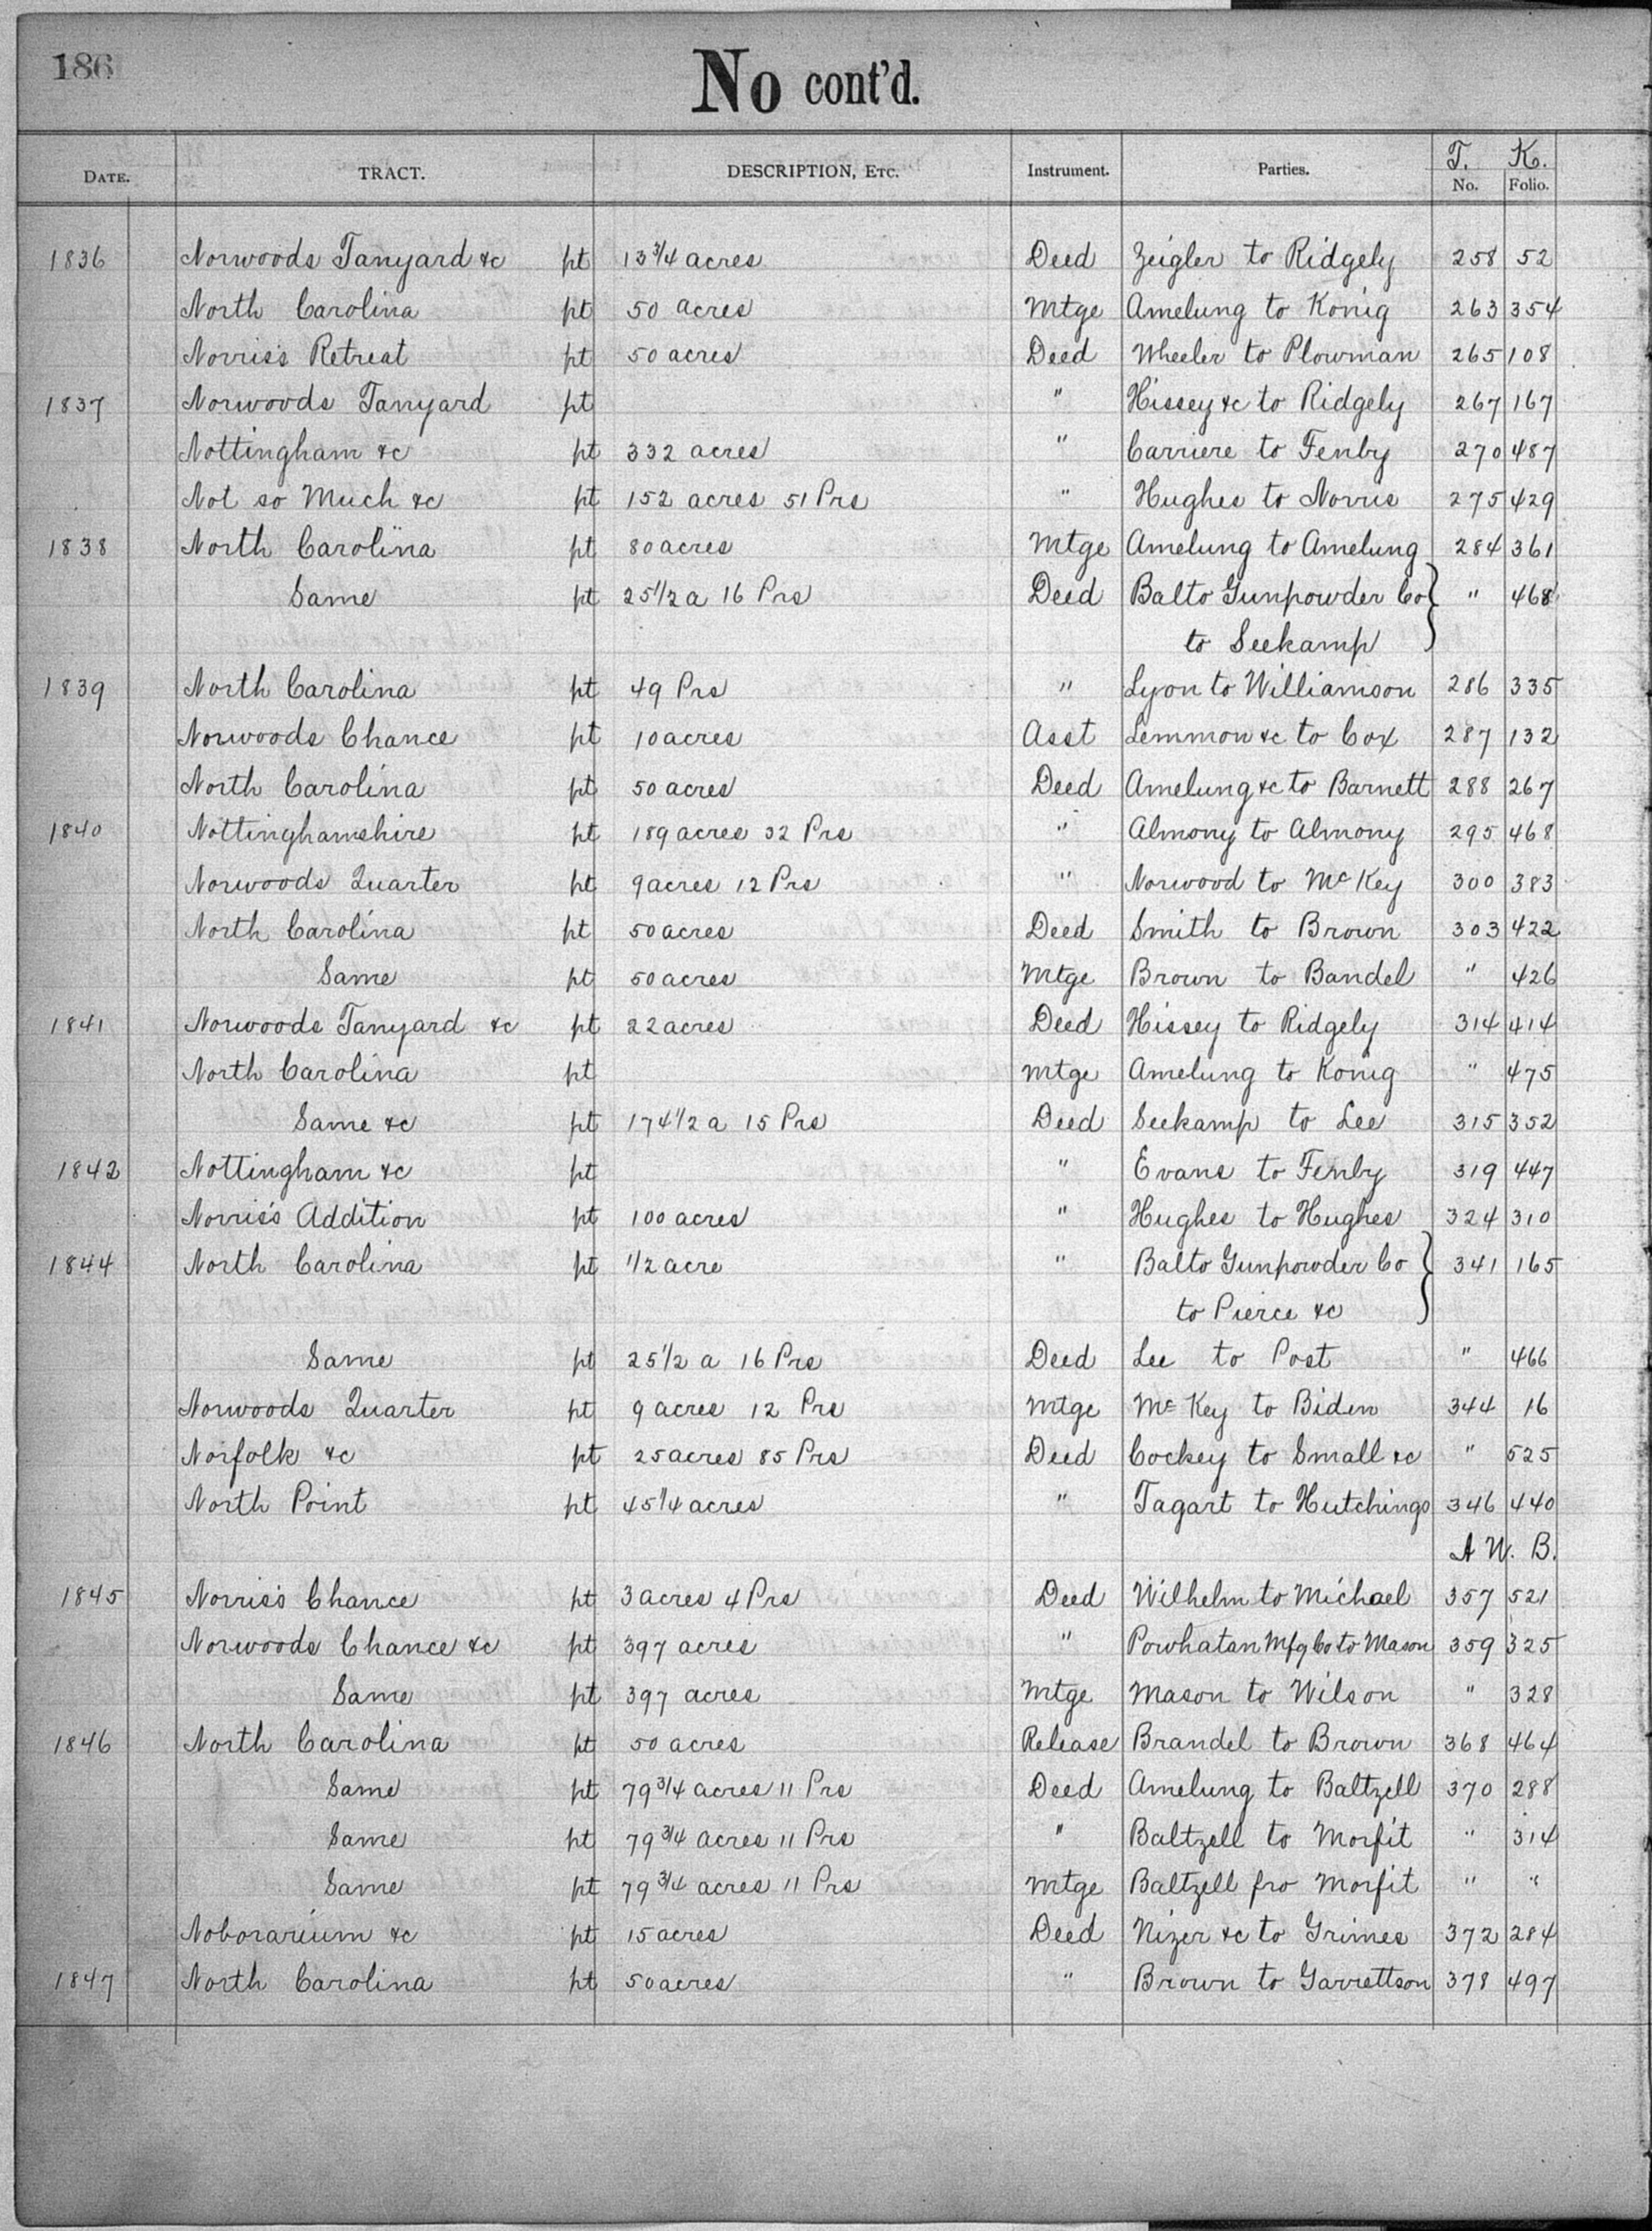 186
No cont'd.
DATE. TRACT. DESCRIPTION, ETC. Instrument. Parties. T. No. K. Folio.
1836 Norwoods Tanyard &c pt 13 3/4 acres Deed Zeigler to Ridgely 258 52
North Carolina pt 50 acres Mtge Amelung to Konig 263 354
Norris's Retreat pt 50 acres Deed Wheeler to Plowman 265 108
1837 Norwoods Tanyard pt " Hissey &c to Ridgely 267 167
Nottingham &c pt 332 acres " Carriere to Fenby 270 487
Not so Much &c pt 152 acres 51 Prs " Hughes to Norris 275 429
1838 North Carolina pt 80 acres Mtge Amelung to Amelung 284 361
Same pt 25 1/2 a 16 Prs Deed Balto Gunpowder Co } " 468
to Seekamp
1839 North Carolina pt 49 Prs " Lyon to Williamson 286 335
Norwoods Chance pt 10 acres Asst Lemmon &c to Cox 287 132
North Carolina pt 50 acres Deed Amelung &c to Barnett 288 267
1840 Nottinghamshire pt 189 acres 32 Prs " Almony to Almony 295 468
Norwoods Quarter pt 9 acres 12 Prs " Norwood to McKey 300 383
North Carolina pt 50 acres Deed Smith to Brown 303 422
Same pt 50 acres Mtge Brown to Bandel " 426
1841 Norwoods Tanyard &c pt 22 acres Deed Hissey to Ridgely 314 414
North Carolina pt Mtge Amelung to Konig " 475
Same &c pt 174 1/2 a 15 Prs Deed Seekamp to Lee 315 352
1842 Nottingham &c pt " Evans to Fenby 319 447
Norris's Addition pt 100 acres " Hughes to Hughes 324 310
1844 North Carolina pt 1/2 acre " Balto Gunpowder Co } 341 165
to Pierce &c
Same pt 25 1/2 a 16 Prs Deed Lee to Post " 466
Norwoods Quarter pt 9 acres 12 Prs Mtge McKey to Biden 344 16
Norfolk &c pt 25 acres 85 Prs Deed Cockey to Small &c " 525
North Point pt 45 1/4 acres " Tagart to Hutchings 346 440
A W. B.
1845 Norris's Chance pt 3 acres 4 Prs Deed Wilhelm to Michael 357 521
Norwoods Chance &c pt 397 acres " Powhatan Mfg Co to Mason 359 325
Same pt 397 acres Mtge Mason to Wilson " 328
1846 North Carolina pt 50 acres Release Brandel to Brown 368 464
Same pt 79 3/4 acres 11 Prs Deed Amelung to Baltzell 370 288
Same pt 79 3/4 acres 11 Prs " Baltzell to Morfit " 314
Same pt 79 3/4 acres 11 Prs Mtge Baltzell fro Morfit " "
Noborarium &c pt 15 acres Deed Nizer &c to Grimes 372 284
1847 North Carolina pt 50 acres " Brown to Garrettson 378 497